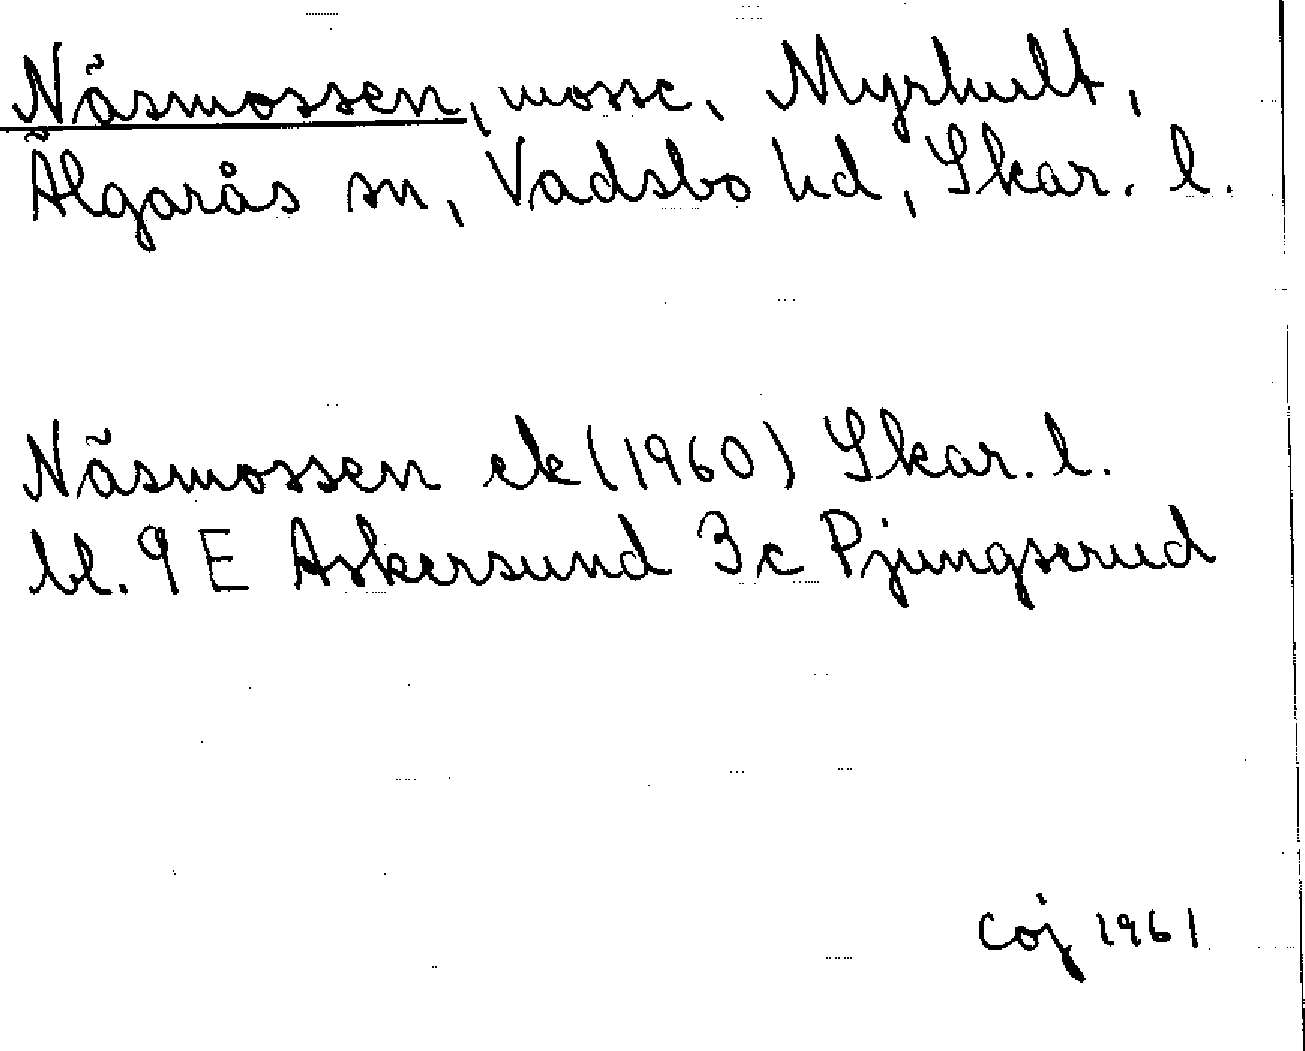 Näsmossen, mosse, Myrhult,
Älgarås sn, Vadsbo hd, Skar. l.
Näsmossen ek (1960) Skar. l.
bl. 9 E Askersund 3c Pjungserud
Coj 1961